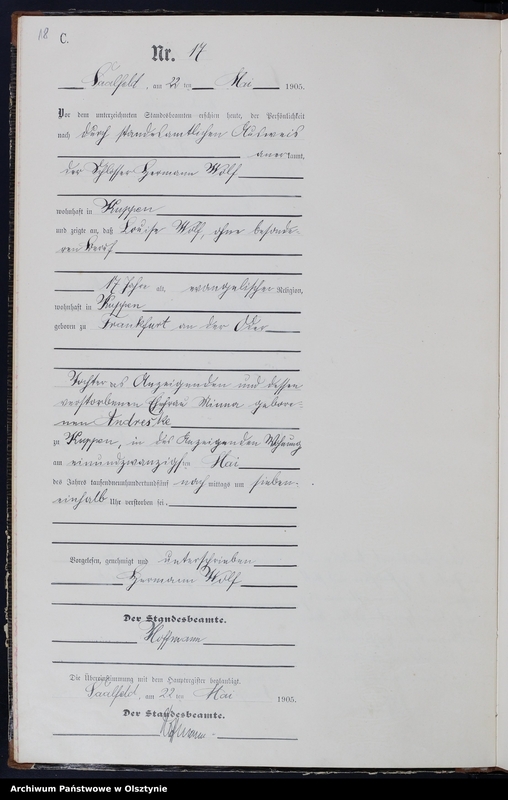 18
C.
Nr. 17
Saalfeld, am 22 ten Mai 1905.
Vor dem unterzeichneten Standesbeamten erschien heute, der Persönlichkeit
nach durch standesamtlichen Ausweis
anerkannt,
der Schlosser Hermann Wolf
wohnhaft in Kuppen
und zeigte an, daß Louise Wolf, ohne besonde-
ren Beruf
17 Jahre alt, evangelischer Religion,
wohnhaft in Kuppen
geboren zu Frankfurt an der Oder
Tochter des Anzeigenden und dessen
verstorbenen Ehefrau Minna gebore-
nen Andreske
zu Kuppen, in des Anzeigenden Wohnung
am einundzwanzigsten Mai
des Jahres tausendneunhundertundfünf nach mittags um sieben-
einhalb Uhr verstorben sei.
Vorgelesen, genehmigt und unterschrieben
Hermann Wolf
Der Standesbeamte.
Hoffmann
Die Übereinstimmung mit dem Hauptregister beglaubigt.
Saalfeld, am 22 ten Mai 1905.
Der Standesbeamte.
Hoffmann
Archiwum Państwowe w Olsztynie